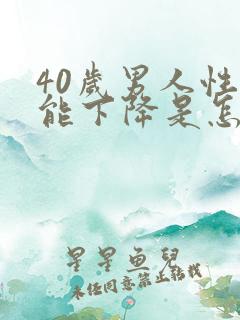 40歲男人性
能下降是怎
星星魚兒
未经同意禁止转载